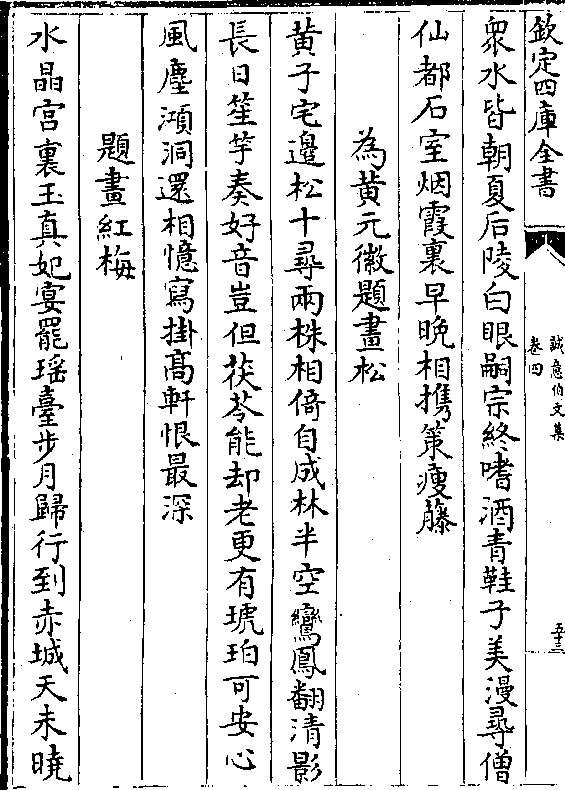 欽定四庫全書
誠意伯文集
卷四
五十三
衆水皆朝夏后陵白眼嗣宗終嗜酒青鞋子美漫尋僧
仙都石室烟霞裏早晚相携策瘦藤
為黄元徽題畫松
黄子宅邉松十尋兩株相倚自成林半空鸞鳳翻清影
長日笙竽奏好音豈但茯苓能却老更有琥珀可安心
風塵澒洞還相憶寫掛髙軒恨最深
題畫紅梅
水晶宫裏玉真妃宴罷瑶臺步月歸行到赤城天未曉